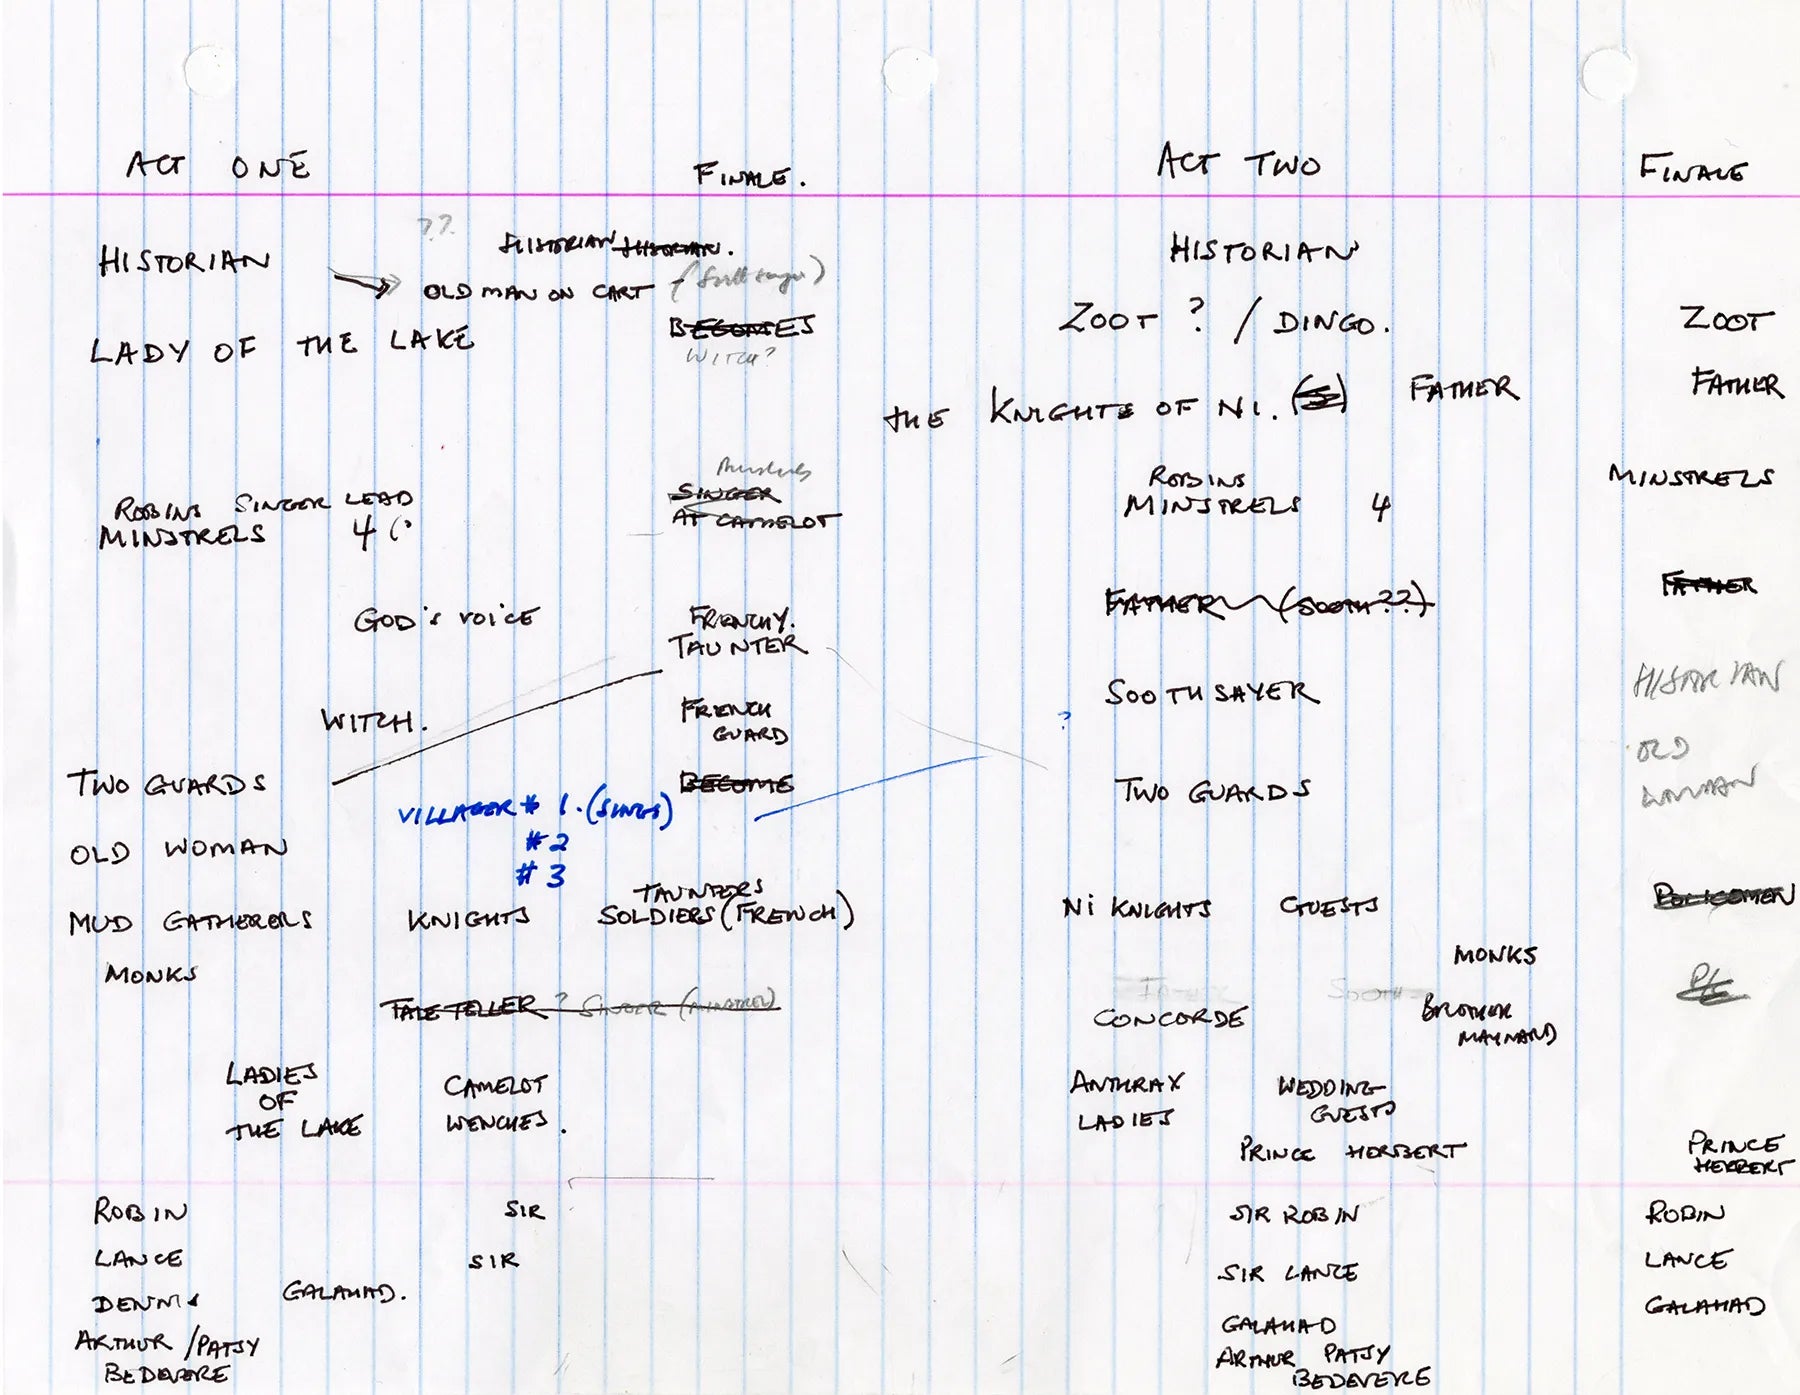 ACT ONE
FINALE.
ACT TWO
FINALE
??
HISTORIAN
HISTORIAN HISTORIAN.
OLD MAN ON CART
LADY OF THE LAKE
BECOMES
WITCH?
ROBINS SINGER LEAD
MINSTRELS 4 (?
SINGER
AT CAMELOT
GOD'S VOICE
FRENCHY.
TAUNTER
WITCH.
FRENCH
GUARD
TWO GUARDS
BECOME
VILLAGER # 1. (SINGS)
# 2
# 3
OLD WOMAN
MUD GATHERERS KNIGHTS
TAUNTERS
SOLDIERS (FRENCH)
MONKS
TALE TELLER ? SINGER (MINSTREL)
LADIES
OF
THE LAKE
CAMELOT
WENCHES.
ROBIN SIR
LANCE SIR
DENNIS GALAHAD.
ARTHUR / PATSY
BEDEVERE
HISTORIAN
ZOOT ? / DINGO.
THE KNIGHTS OF NI. FATHER
ROBINS
MINSTRELS 4
FATHER (SOOTH ??)
SOOTHSAYER
?
TWO GUARDS
NI KNIGHTS GUESTS
MONKS
FATHER SOOTH
CONCORDE
BROTHER
MAYNARD
ANTHRAX
LADIES
WEDDING
GUESTS
PRINCE HERBERT
SIR ROBIN
SIR LANCE
GALAHAD
ARTHUR PATSY
BEDEVERE
ZOOT
FATHER
MINSTRELS
FATHER
HISTORIAN
OLD
WOMAN
POLICEMEN
PRINCE
HERBERT
ROBIN
LANCE
GALAHAD